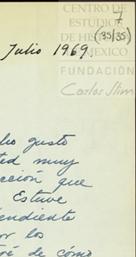 CENTRO DE
ESTUDIOS
DE HIS
MEXICO
FUNDACIÓN
Carlos Slim
7
(35/35)
Julio 1969.
ho gusto
ted muy
cción que
Estuve
endiente
or los
de cómo